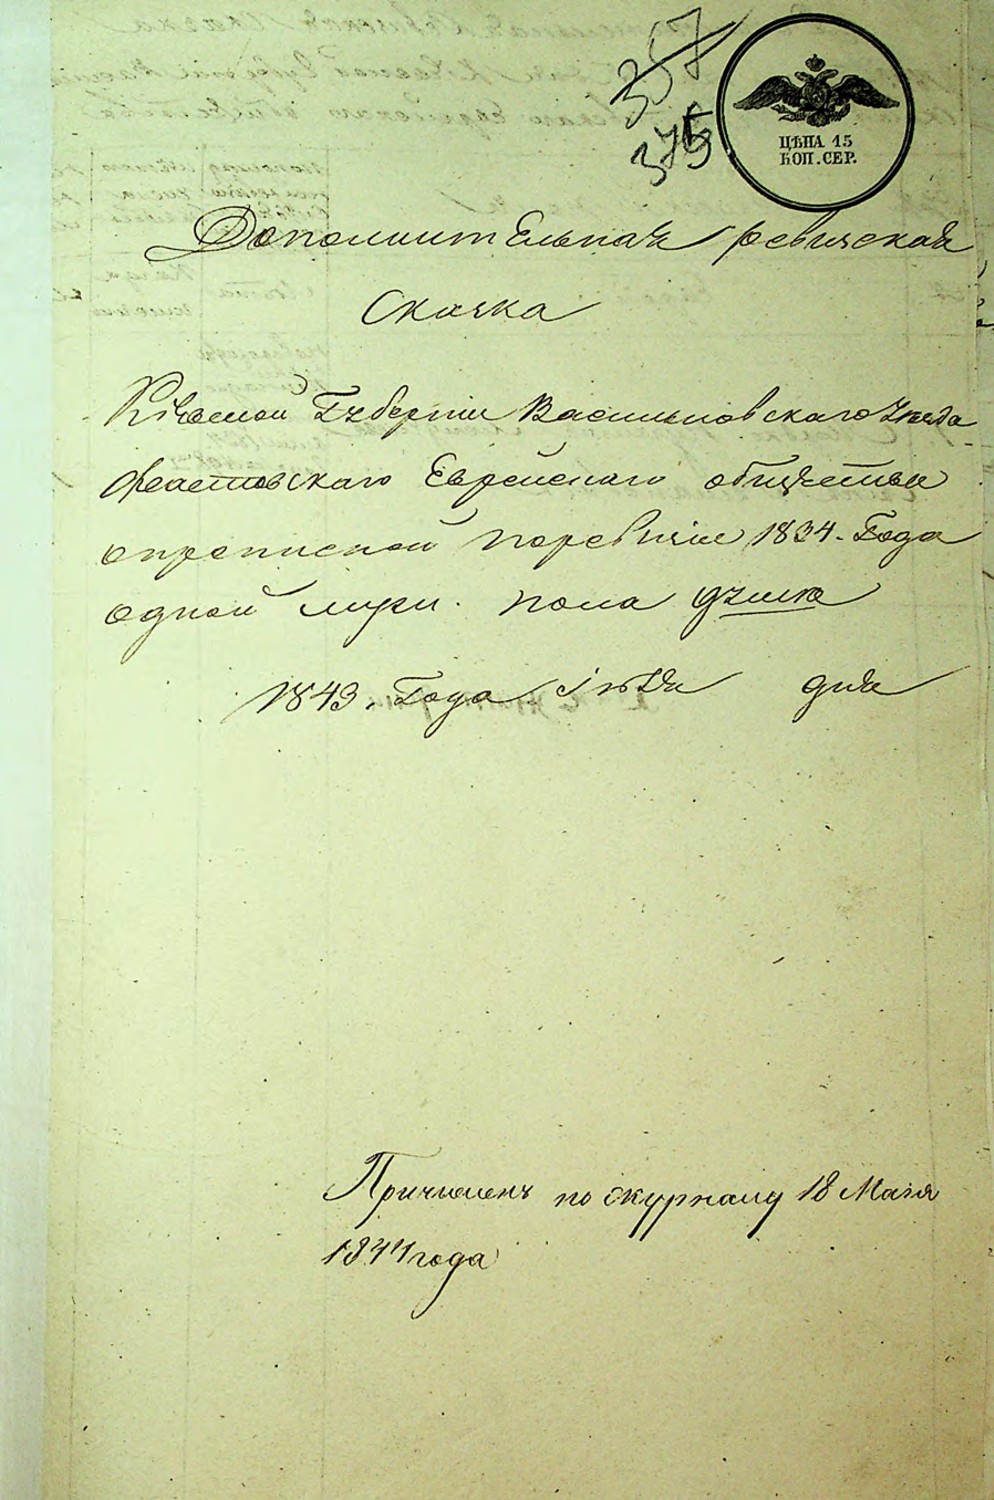 357
375
ЦѢНА 15
КОП. СЕР.
Дополнительная ревизская
Сказка
Кіевской Губерніи Васильковского Уезда
Фастовскаго Еврейскаго общества
опрописной поревизіи 1834. Года
одной муж. пола душе
1843. Года дня
Причислен по журналу 18 Мая
1844 года